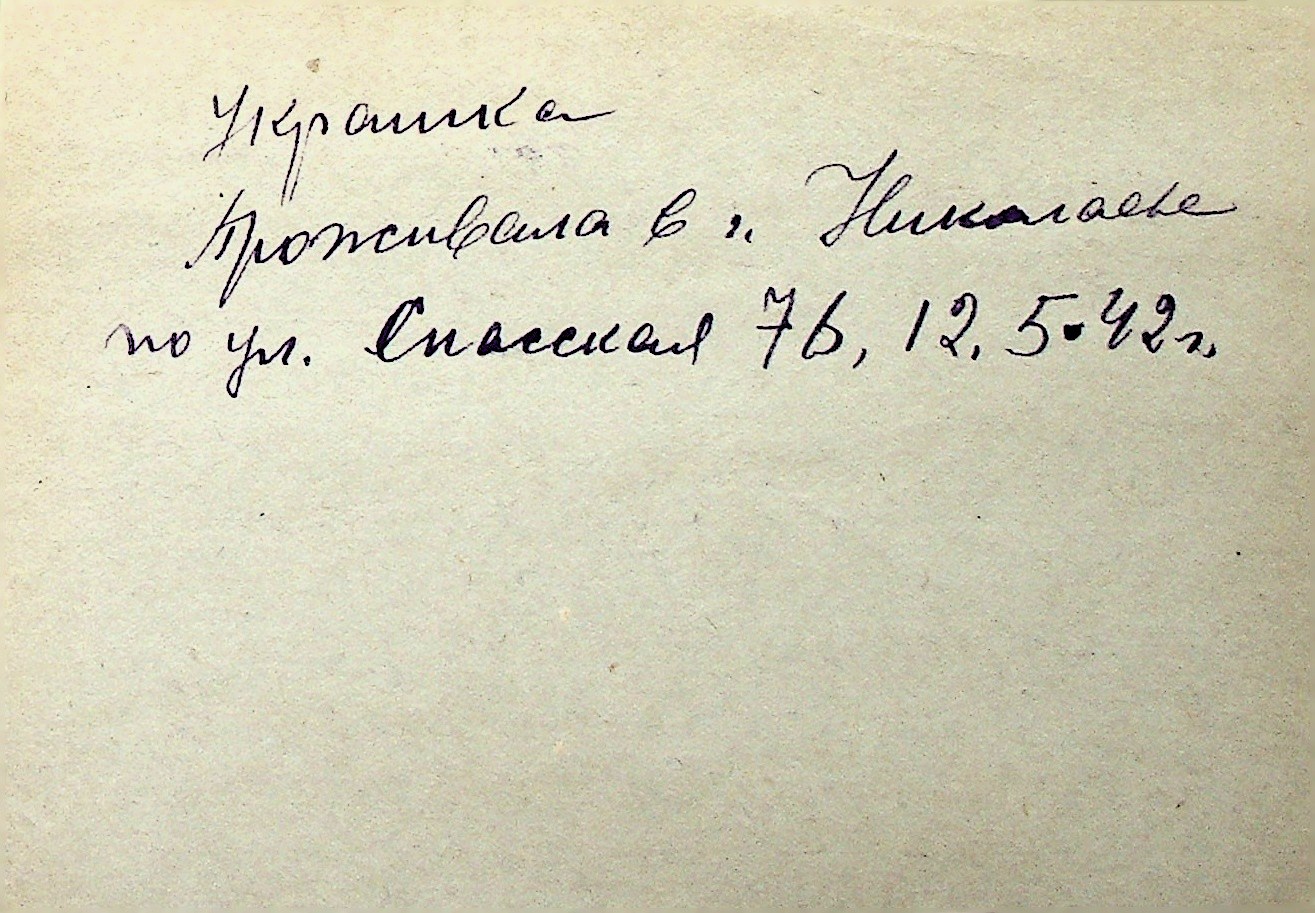 Украинка
Проживала в г. Николаеве
по ул. Спасская 76, 12.5.42г.